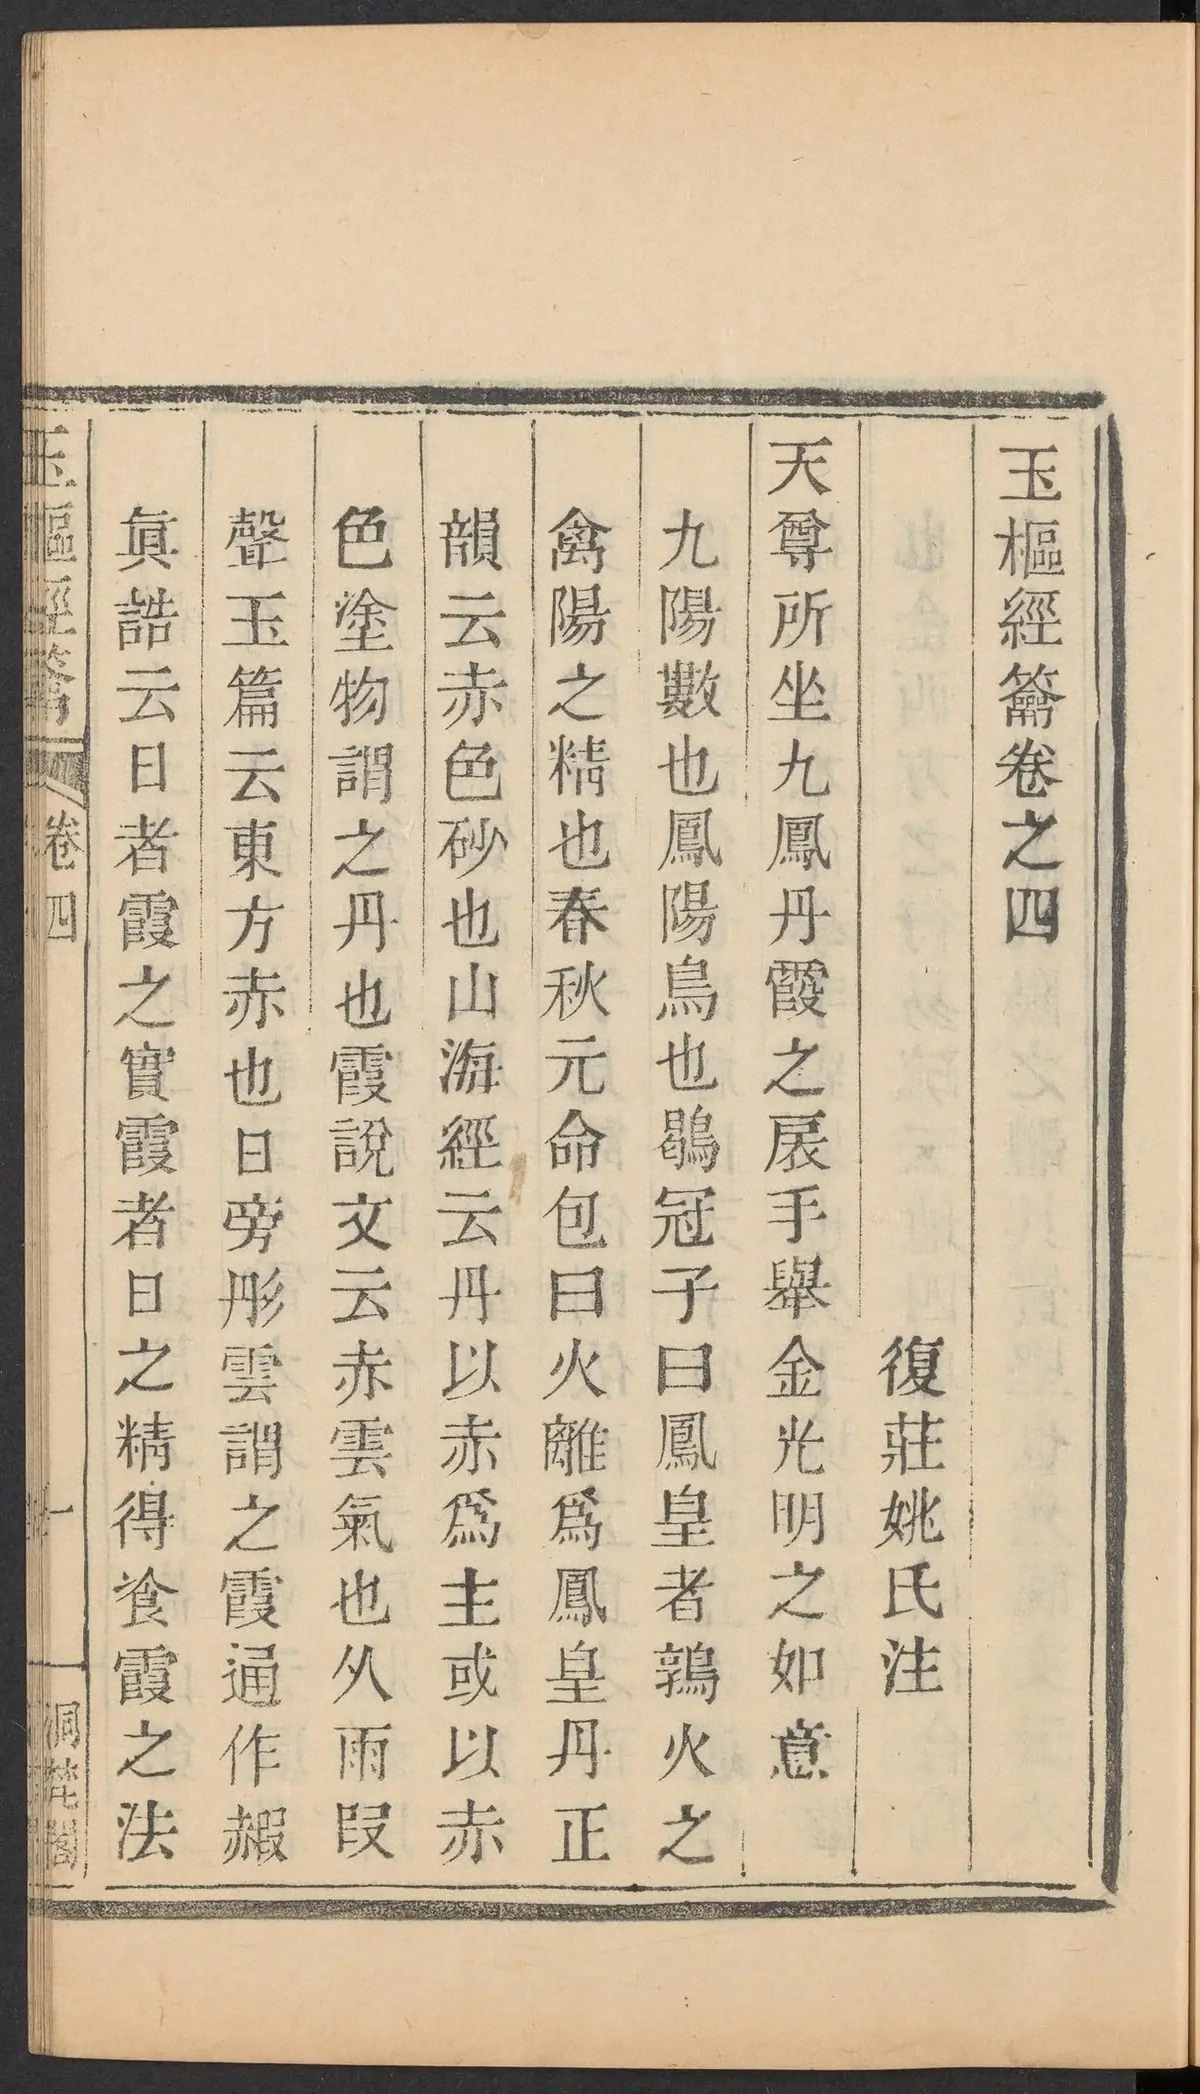 玉樞經籥卷之四
復莊姚氏注
天尊所坐九鳳丹霞之扆手舉金光明之如意
九陽數也鳳陽鳥也鶡冠子曰鳳皇者鶉火之
禽陽之精也春秋元命包曰火離爲鳳皇丹正
韻云赤色砂也山海經云丹以赤爲主或以赤
色塗物謂之丹也霞說文云赤雲氣也从雨叚
聲玉篇云東方赤也日旁彤雲謂之霞通作赮
眞誥云日者霞之實霞者日之精得飡霞之法
玉樞經籥 卷四 一 洞梵閣